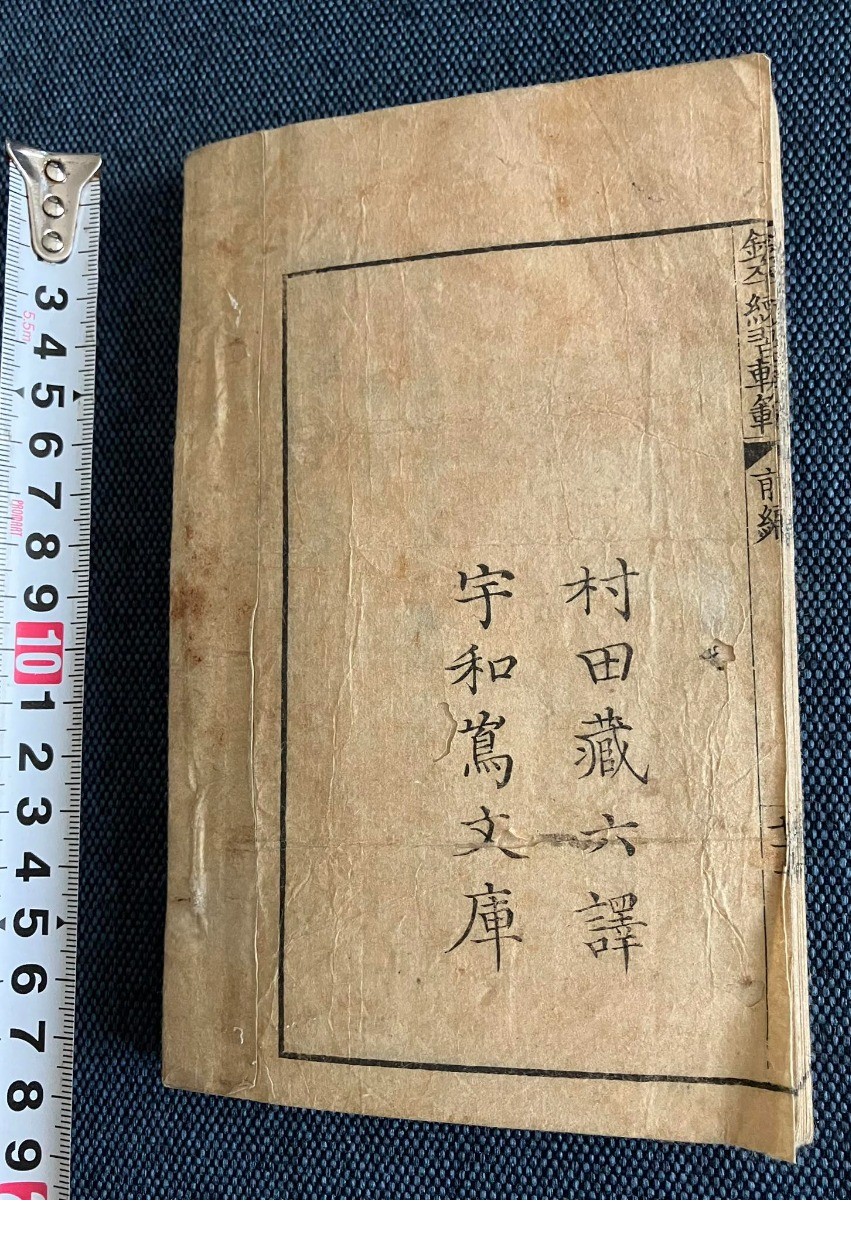 前編
村田藏六譯
宇和嶌文庫
3 4 5 6 7 8 9 10 1 2 3 4 5 6 7 8 9
5.5m
PROMART